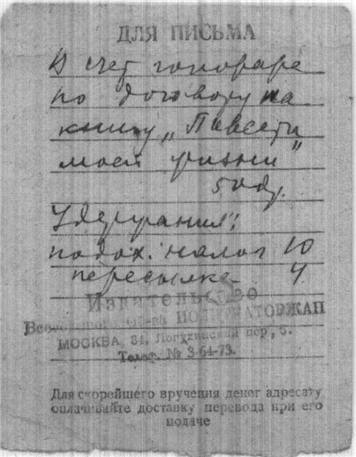 ДЛЯ ПИСЬМА
В счет гонорара
по договору на
книгу „Повести
моей жизни"
50 др.
Удержания:
подох. налог 10
пересылка 4
Издательство
ПОЛИТКАТОРЖАН
МОСКВА, 34, Лопухинский пер., 5.
Телеф. № 3-64-73.
Для скорейшего вручения денег адресату
оплачивайте доставку перевода при его
подаче